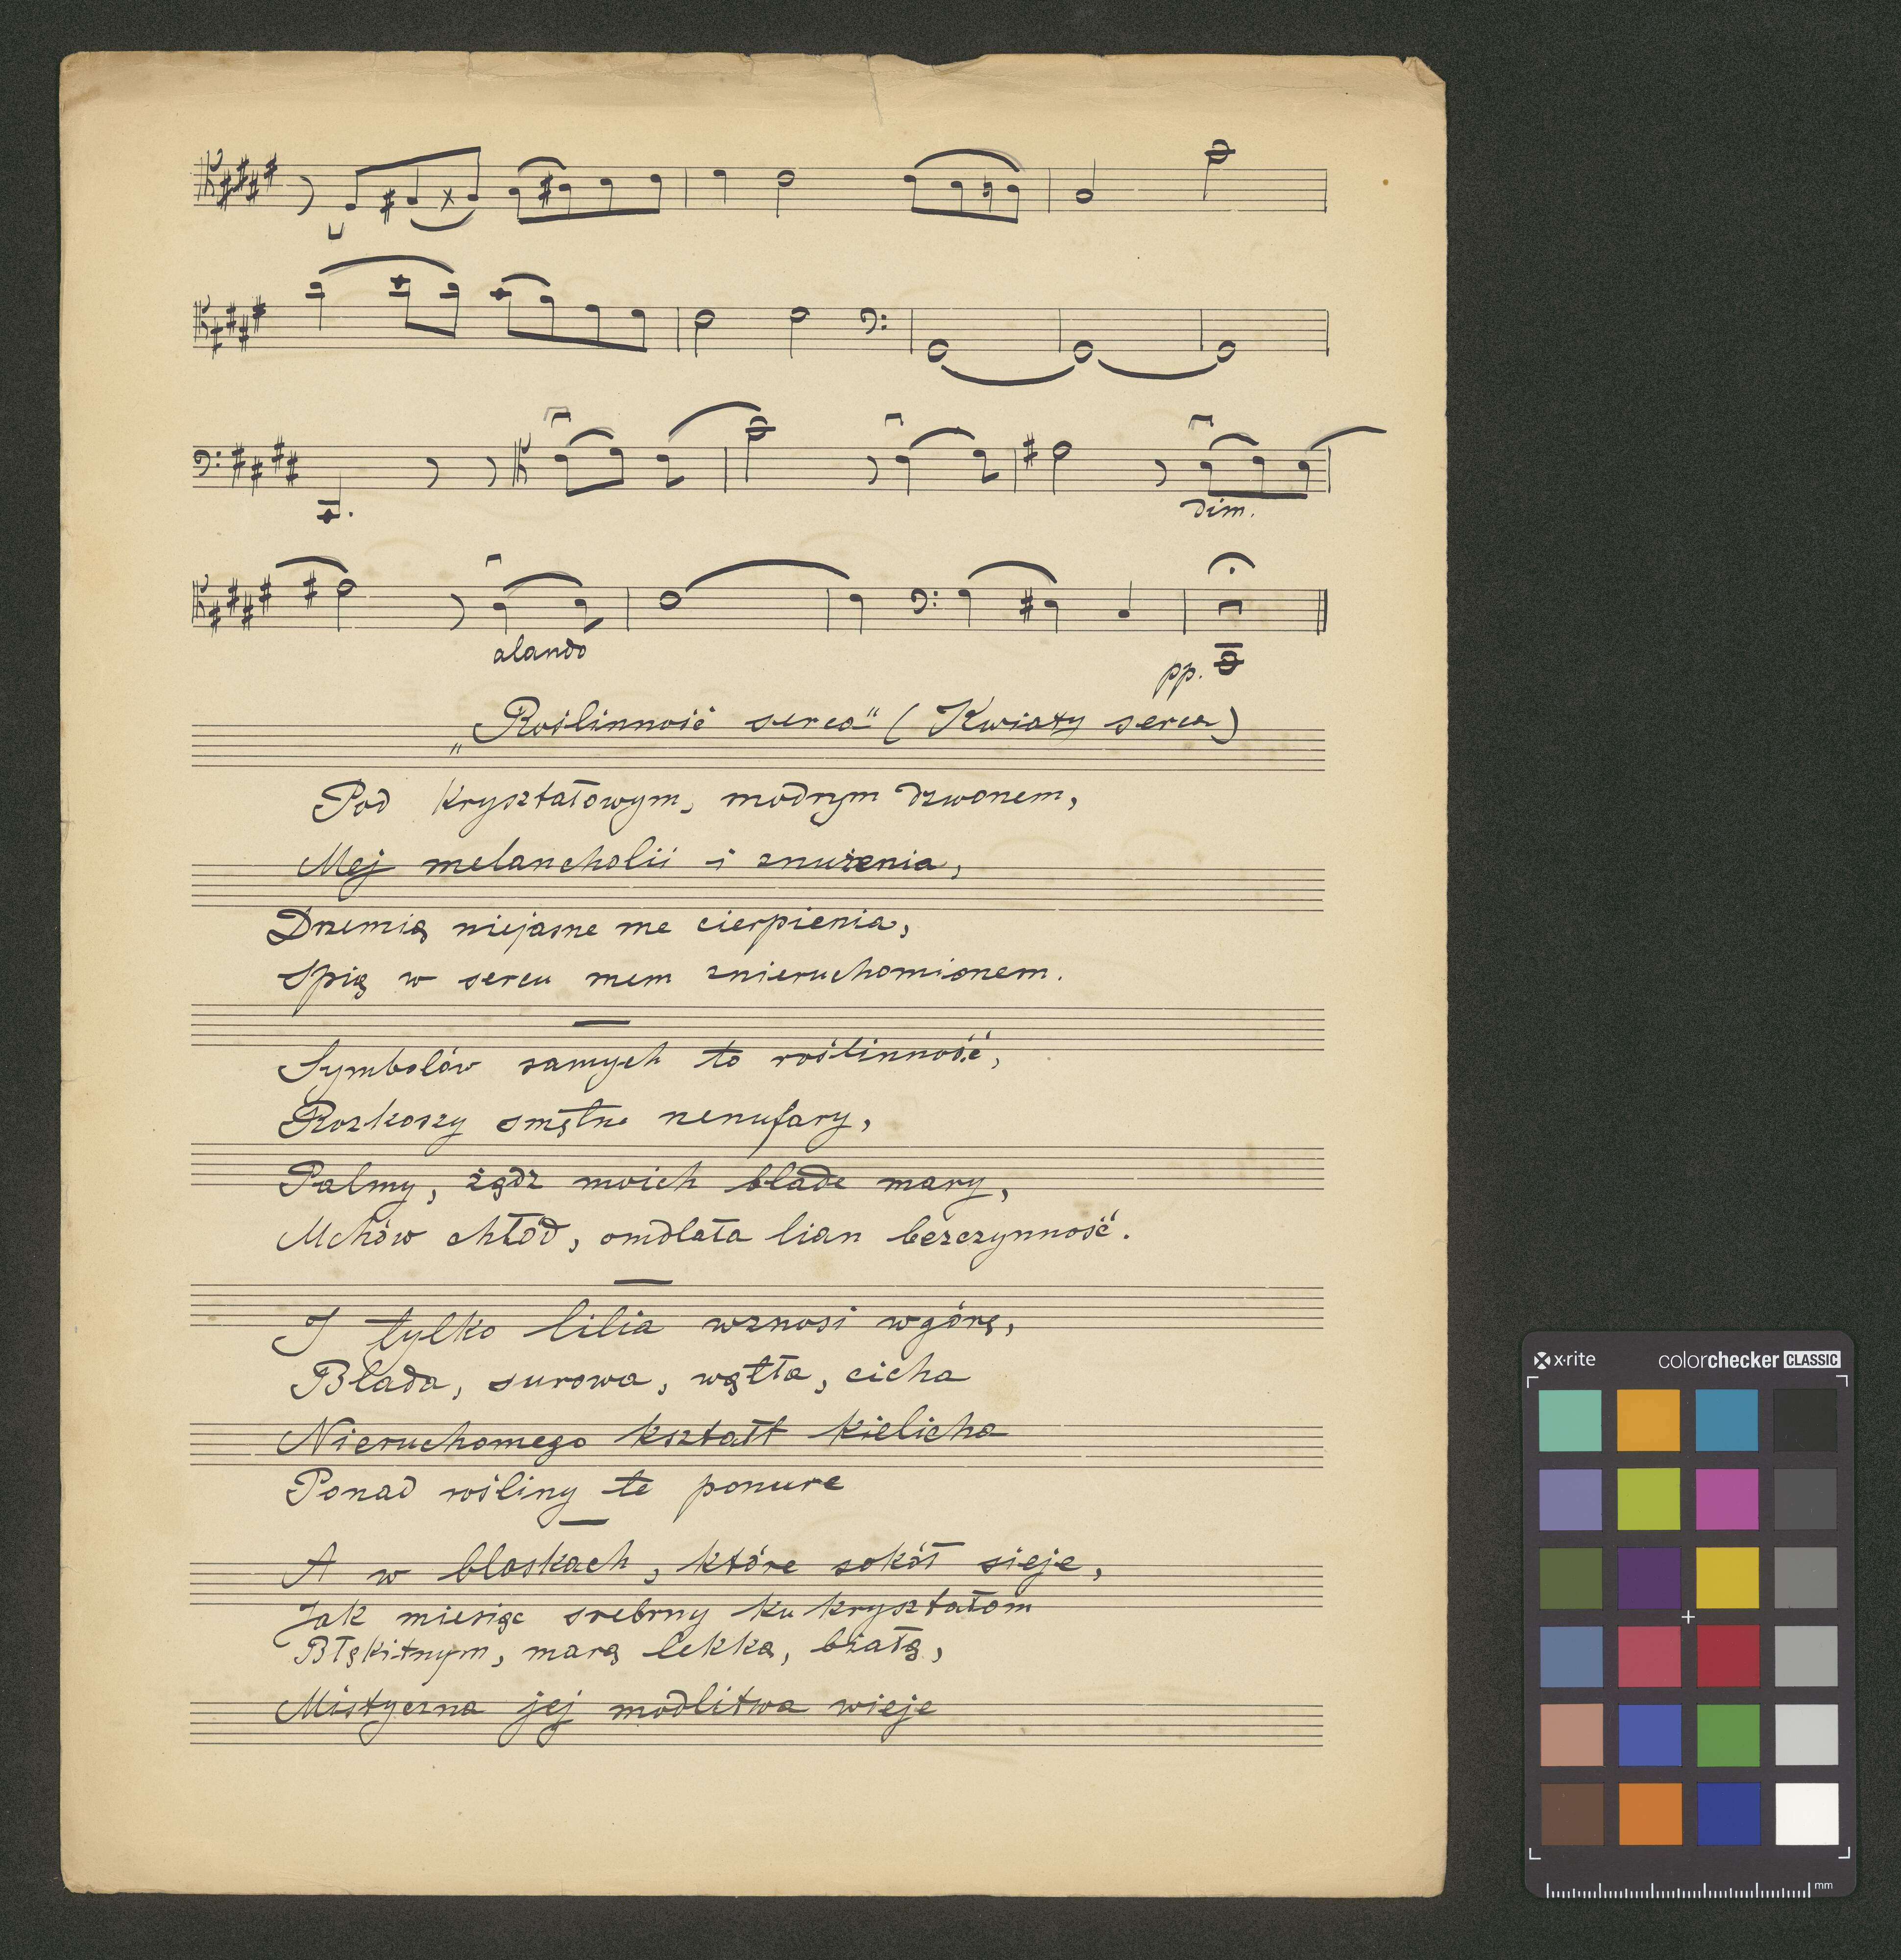 dim.
alando
pp.
„Roślinność serca" (Kwiaty serca)
Pod kryształowym, modrym dzwonem,
Mej melancholii i znużenia,
Drzemią niejasne me cierpienia,
Spią w sercu mem znieruchomionem.
Symbolów samych to roślinność,
Rozkoszy smętne nenufary,
Palmy, żądz moich blade mary,
Mchów chłód, omdlała lian bezczynność.
I tylko lilia wznosi wgórę,
Blada, surowa, wątła, cicha
Nieruchomego kształt kielicha
Ponad rośliny te ponure
A w blaskach, które sokół sieje,
Jak miesiąc srebrny ku kryształom
Błękitnym, marą lekką, białą,
Mistyczna jej modlitwa wieje
x·rite colorchecker CLASSIC
mm